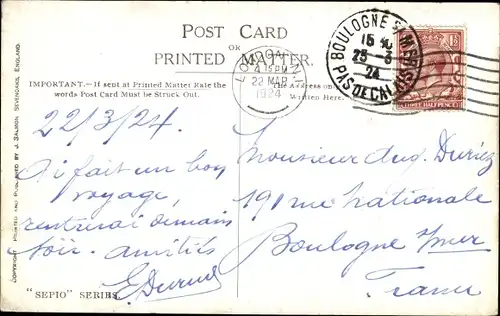 POST CARD
OR
PRINTED MATTER.
IMPORTANT.—If sent at Printed Matter Rate the
words Post Card Must be Struck Out.
The Address only
Written Here.
LONDON. N.1
4.15 PM
22 MAR
1924
BOULOGNE S/ MER
15
23-3
24
PAS DE CALAIS
THREE HALFPENCE
22/3/24.
ai fait un bon
voyage,
rentrerai demain
soir. amitiés
Monsieur Aug. Duriez
191 rue Nationale
Boulogne s/mer
France
"SEPIO" SERIES.
COPYRIGHT. PRINTED AND PUBLISHED BY J. SALMON, SEVENOAKS, ENGLAND.